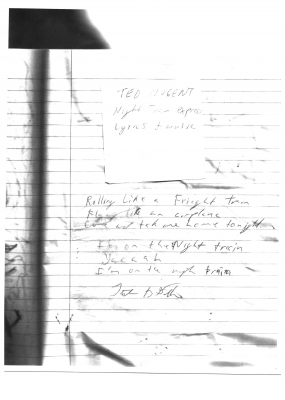 TED NUGENT
Night Train Express
Lyrics & music
Rolling Like a Frieght Train
Flying Like an airplane
take me home tonight
I'm on the Night train
Yeeaah
I'm on the night train